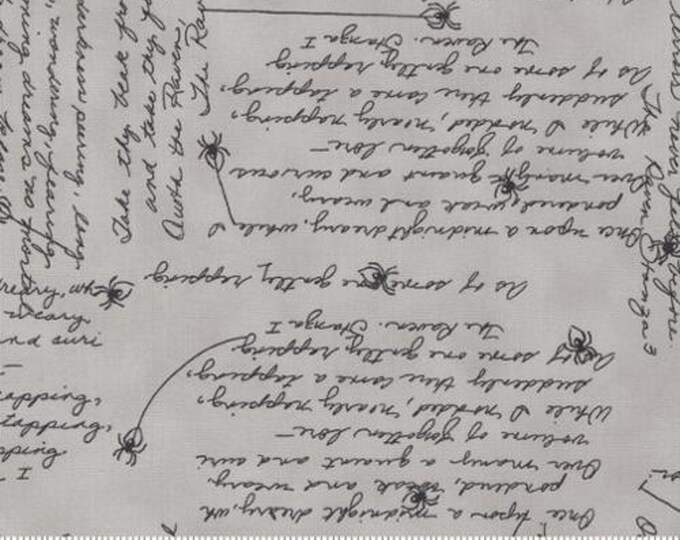 Once upon a midnight dreary, while I
pondered, weak and weary,
Over many a quaint and curious
volume of forgotten lore—
While I nodded, nearly napping,
suddenly there came a tapping,
As of some one gently rapping
The Raven. Stanza I
As of some one gently rapping
Once upon a midnight dreary, wh
pondered, weak and weary,
Over many a quaint and curi
volume of forgotten lore—
While I nodded, nearly napping,
suddenly there came a tapping,
As of some one gently rapping
The Raven. Stanza I
Take thy beak fro
and take thy fo
Quoth the Raven,
The Rav
peering, long
wondering, fearing
ning dreams no mortal
reary, wh
weary
nd curi
—
apping,
tapping,
pping
I
The Raven Stanza 3